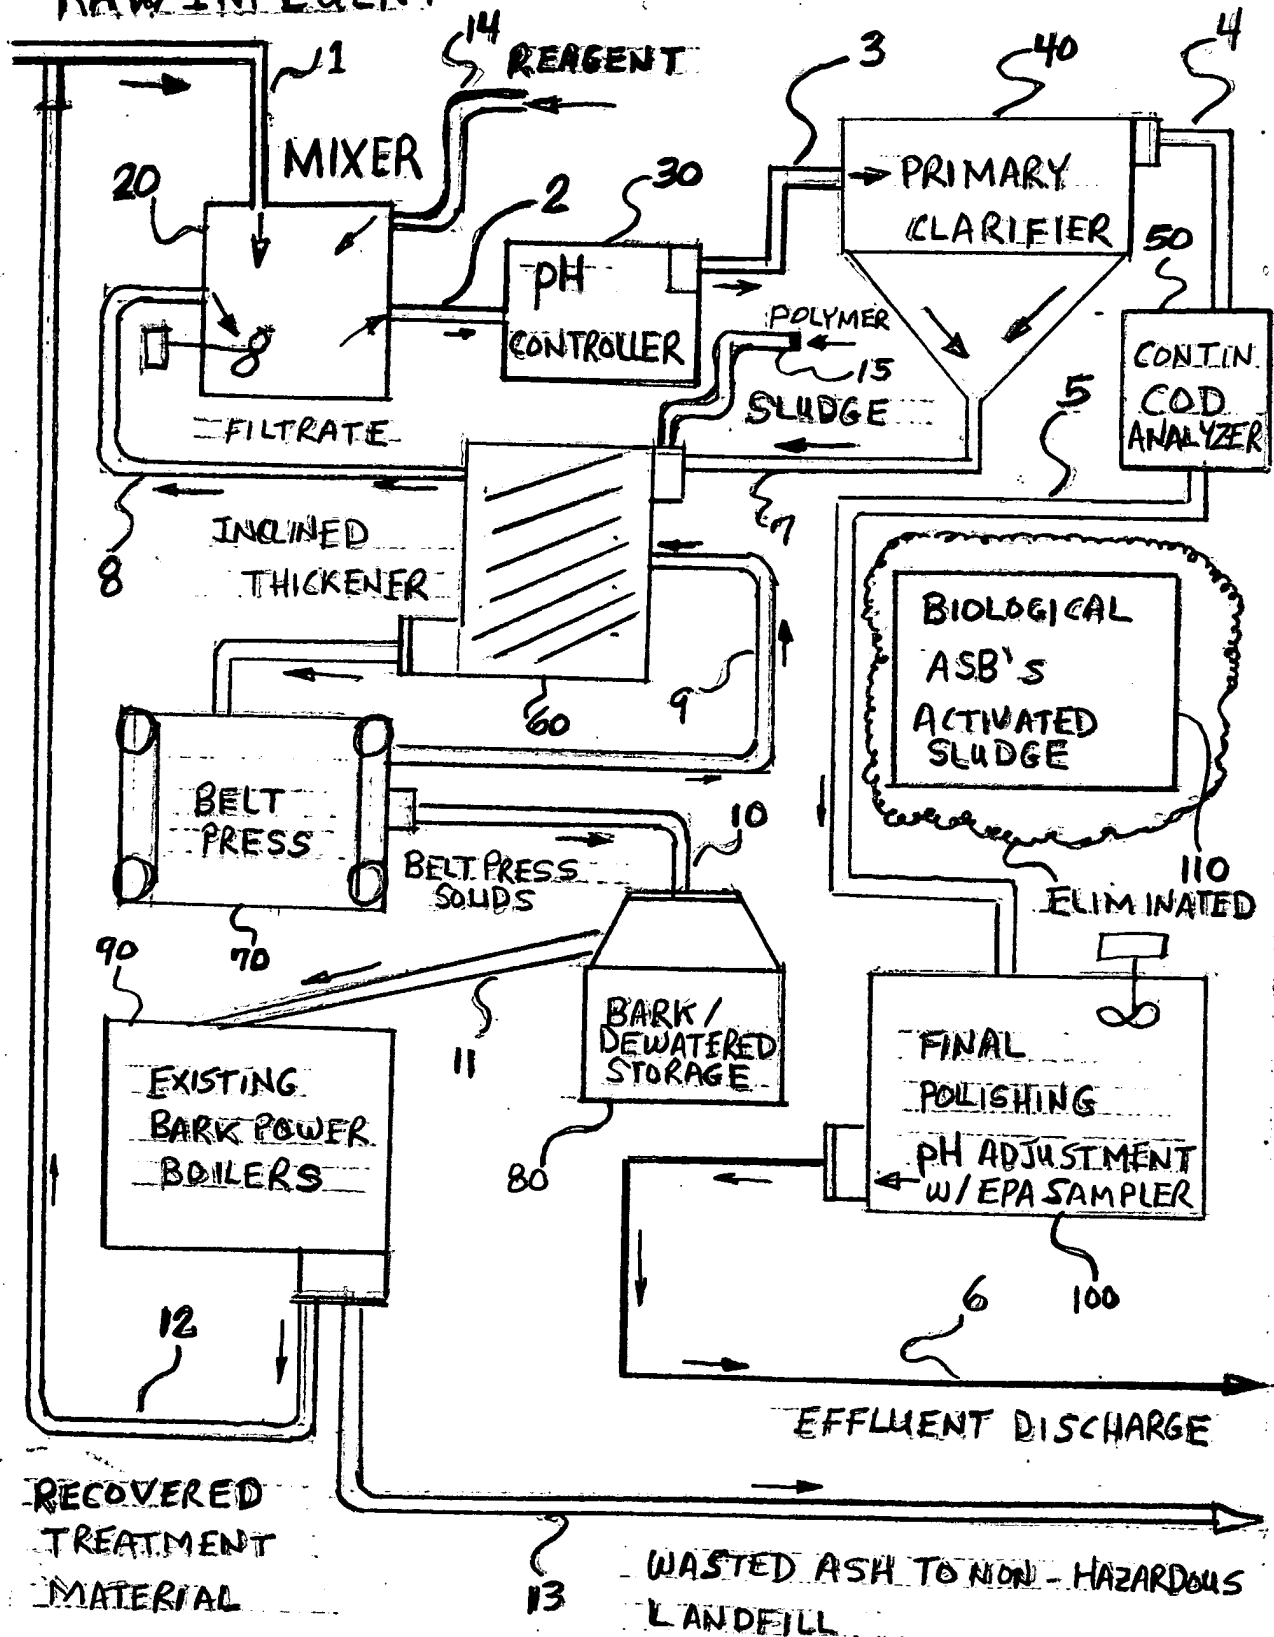 RAW INFLUENT
14
REAGENT
1
3
40
4
MIXER
20
2
30
PRIMARY
CLARIFIER
50
pH
CONTROLLER
POLYMER
15
SLUDGE
CONTIN.
COD
ANALYZER
5
FILTRATE
7
8
INCLINED
THICKENER
60
9
BIOLOGICAL
ASB's
ACTIVATED
SLUDGE
110
ELIMINATED
BELT
PRESS
70
10
BELT PRESS
SOLIDS
90
11
BARK /
DEWATERED
STORAGE
80
EXISTING
BARK POWER
BOILERS
FINAL
POLISHING
pH ADJUSTMENT
W/ EPA SAMPLER
100
12
6
EFFLUENT DISCHARGE
RECOVERED
TREATMENT
MATERIAL
13
WASTED ASH TO NON - HAZARDOUS
LANDFILL